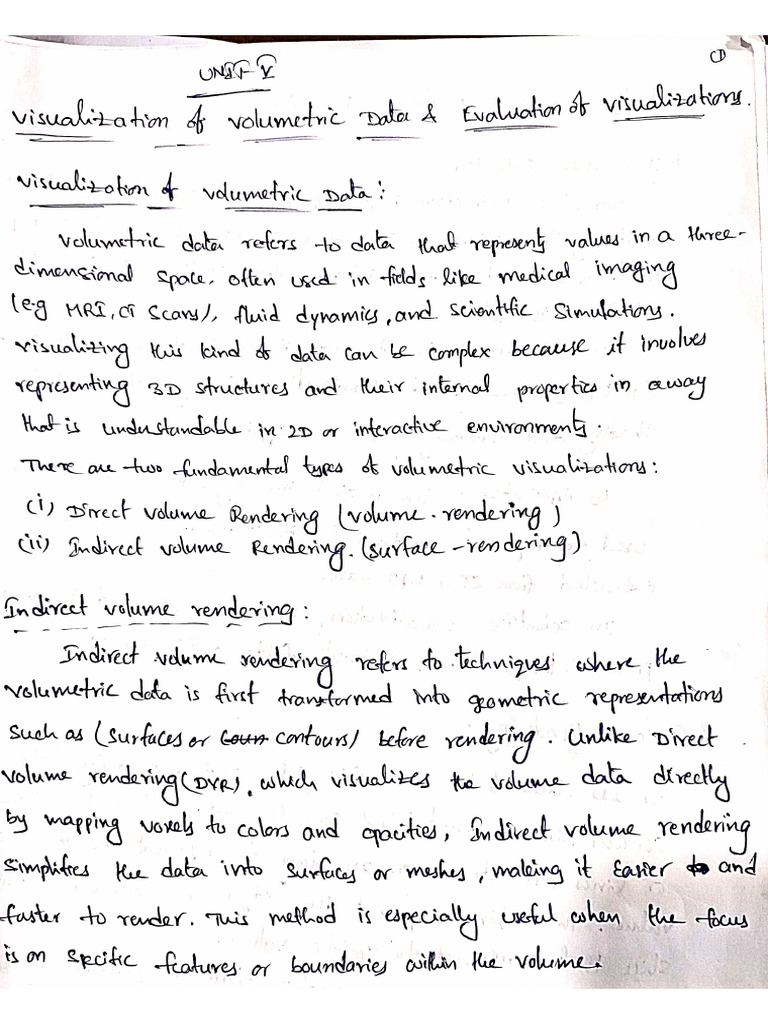 ①
UNIT-V
Visualization of Volumetric Data & Evaluation of Visualizations.
Visualization of Volumetric Data:
Volumetric data refers to data that represents values in a three-
dimensional space, often used in fields like medical imaging
(e.g MRI, CT Scans), fluid dynamics, and scientific simulations.
Visualizing this kind of data can be complex because it involves
representing 3D structures and their internal properties in away
that is understandable in 2D or interactive environments.
There are two fundamental types of volumetric visualizations:
(i) Direct volume Rendering (volume-rendering)
(ii) Indirect volume Rendering. (surface-rendering)
Indirect volume rendering:
Indirect volume rendering refers to techniques where the
volumetric data is first transformed into geometric representations
such as (surfaces or contours) before rendering. Unlike Direct
volume rendering (DVR), which visualizes the volume data directly
by mapping voxels to colors and opacities, Indirect volume rendering
simplifies the data into surfaces or meshes, making it easier and
faster to render. This method is especially useful when the focus
is on specific features or boundaries within the volume.